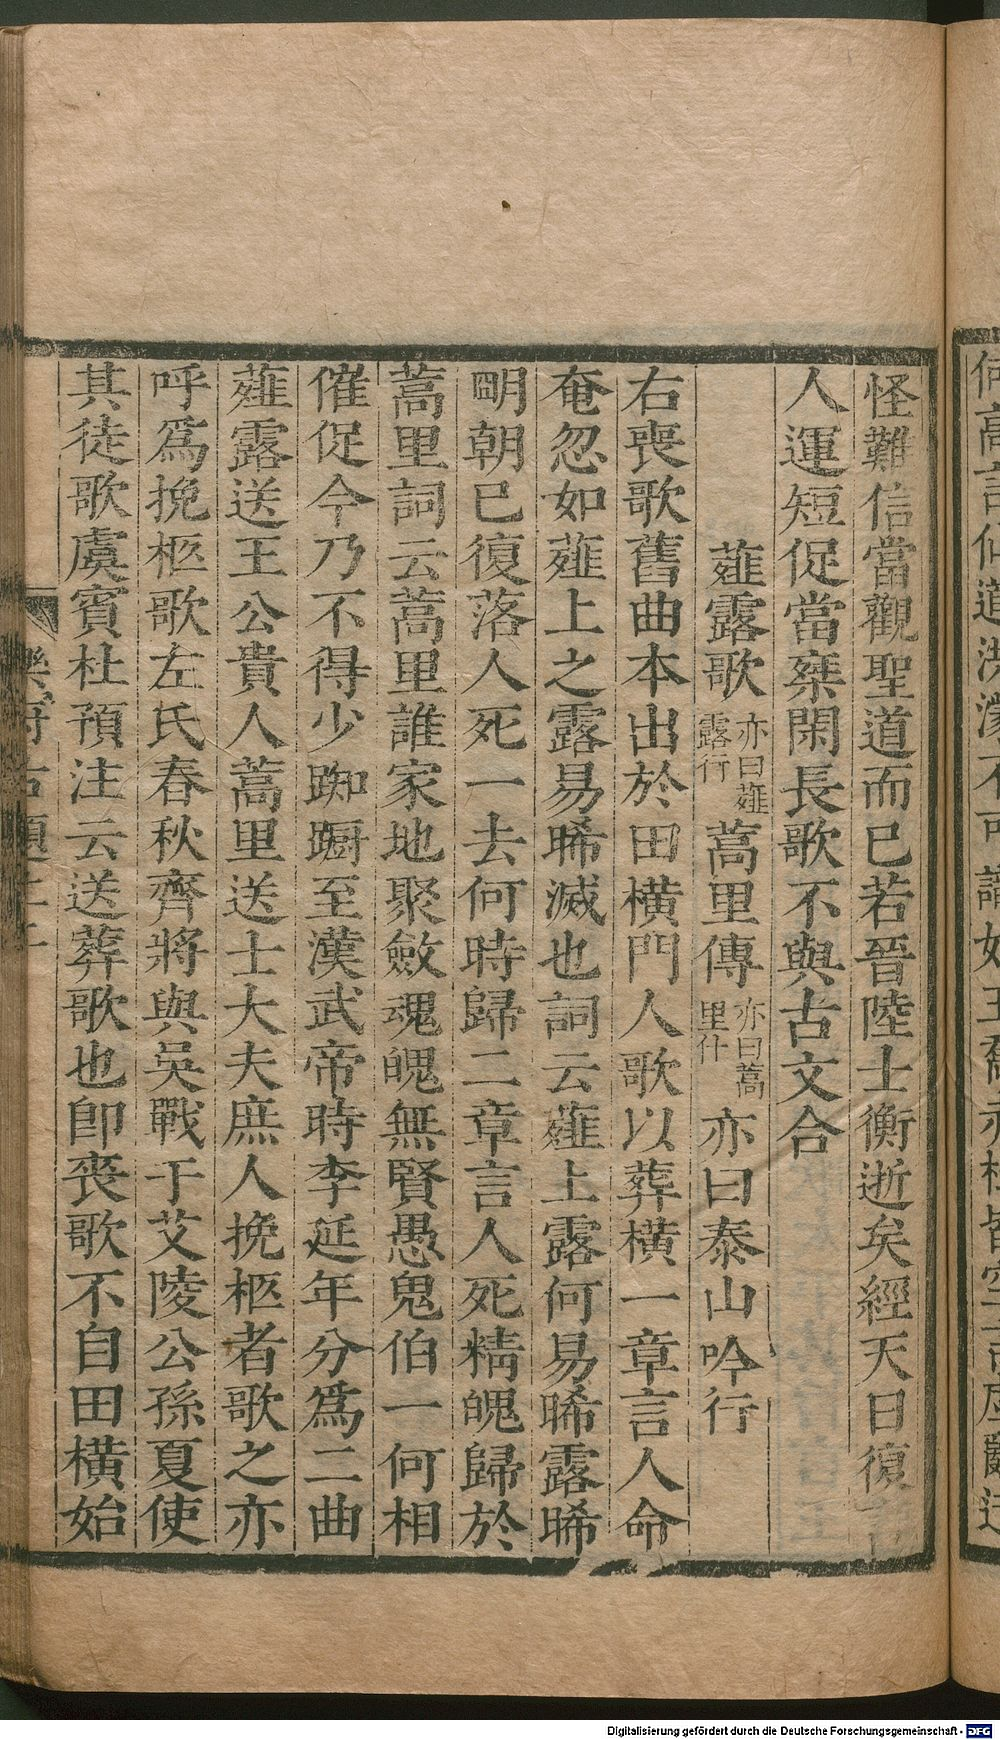 怪難信當觀聖道而已若晉陸士衡逝矣經天日復
人運短促當椉閑長歌不與古文合
薤露歌亦曰薤露行蒿里傳亦曰蒿里什亦曰泰山吟行
右喪歌舊曲本出於田橫門人歌以葬橫一章言人命
奄忽如薤上之露易晞滅也詞云薤上露何易晞露晞
明朝已復落人死一去何時歸二章言人死精魄歸於
蒿里詞云蒿里誰家地聚斂魂魄無賢愚鬼伯一何相
催促今乃不得少踟蹰至漢武帝時李延年分爲二曲
薤露送王公貴人蒿里送士大夫庶人挽柩者歌之亦
呼爲挽柩歌左氏春秋齊將與吳戰于艾陵公孫夏使
其徒歌虞賓杜預注云送葬歌也卽喪歌不自田橫始
樂府古題
Digitalisierung gefördert durch die Deutsche Forschungsgemeinschaft - DFG